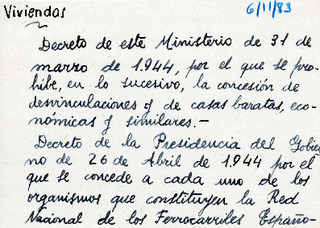 Viviendas 6/11/83
Decreto de este Ministerio de 31 de
marzo de 1.944, por el que se pro-
hibe, en lo sucesivo, la concesión de
desvinculaciones y de casas baratas, eco-
nómicas y similares.-
Decreto de la Presidencia del Gobier
no de 26 de Abril de 1.944 por el
que se concede a cada uno de los
organismos que constituyen la Red
Nacional de los Ferrocarriles Españo-